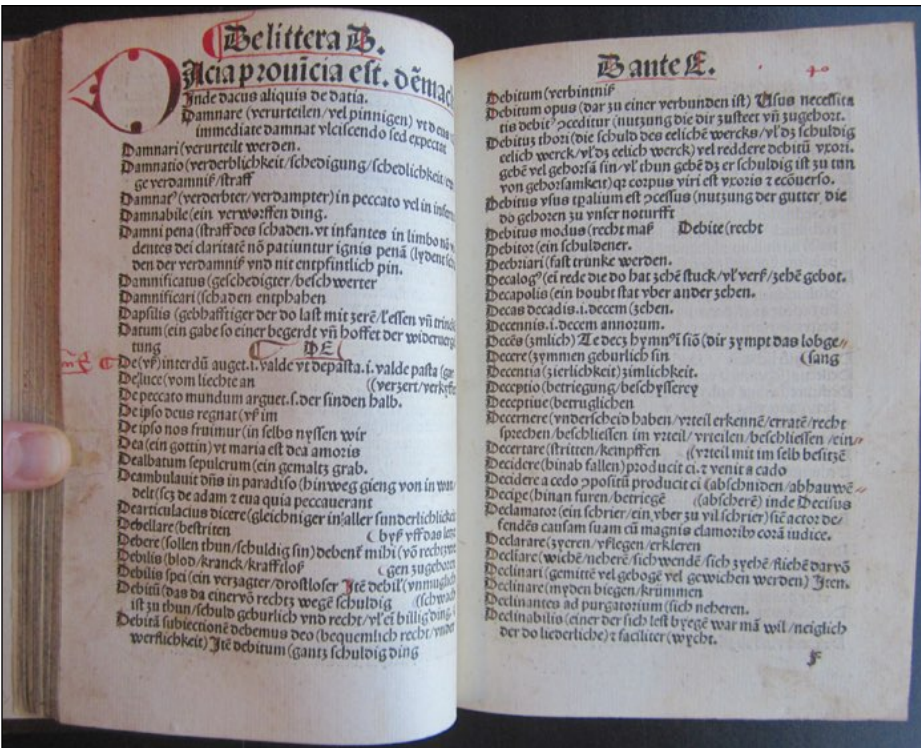 De littera D.
Dacia prouīcia est. dēmarc
Inde dacus aliquis de datia.
Damnare (verurteilen/vel pinnigen) vt deus
immediate damnat vlciscendo sed expectat
Damnari (verurteilt werden.
Damnatio (verderblichkeit/schedigung/schedlichkeit
ge verdamniß/straff
Damnatꝰ (verderbter/verdampter) in peccato vel in inferno
Damnabile (ein verworffen ding.
Damni pena (straff des schaden. vt infantes in limbo nō
dentes dei claritatē nō patiuntur ignis penā (lydent
den der verdamniß vnd nit entpfintlich pin.
Damnificatus (geschedigter/beschwerter
Damnificari (schaden entphahen
Dapsilis (gebhafftiger der do last mit zerē/l'essen vñ trincken
Datum (ein gabe so einer begerdt vñ hoffet der wideruergel
tung DE
De (vß) interdū auget .i. valde vt depasta .i. valde pasta
Deluce (vom liechte an ((verzert/verkyfft
De peccato mundum arguet .s. der sinden halb.
De ipso deus regnat (vß im
De ipso nos fruimur (in selbs nyssen wir
Dea (ein gottin) vt maria est dea amoris
Dealbatum sepulcrum (ein gemaltz grab.
Deambulauit dn̄s in paradiso (hinweg gieng von in
delt (scz de adam ⁊ eua quia peccauerant
Dearticulacius dicere (gleichniger in/aller sunderlichlicheit
Debellare (bestriten ( byß vff das
Debere (sollen thun/schuldig sin) debent mihi (vō rechtz
Debilis (blod/kranck/krafftloß (gen zugehoren
Debilis spei (ein verzagter/drostloser Itē debil' (vnmuglich
Debitū (das da einer vō rechtz wegē schuldig ((schwach
ist zu thun/schuld geburlich vnd recht/vl' ei billig ding.
Debitā subiectionē debemus deo (bequemlich recht/vnder
werflichkeit) Itē debitum (gantz schuldig ding
D ante E.
Debitum (verbintniß
Debitum opus (dar zu einer verbunden ist) Usus necessita
tis debitꝰ ꝓceditur (nutzung die dir zusteet vñ zugehort.
Debituʒ thori (die schuld des eelichē wercks/vl' dʒ schuldig
eelich werck/vl' dʒ eelich werck) vel reddere debitū vxori.
gebē vel gehorsā sin/vl' thun gebē dʒ er schuldig ist zu tun
von gehorsamkeit) qꝛ corpus viri est vxoris ⁊ ecōuerso.
Debitus vsus tꝑalium est ꝓcessus (nutzung der gutter die
do gehoren zu vnser noturfft
Debitus modus (recht maß Debite (recht
Debitor (ein schuldener.
Deebriari (fast trunke werden.
Decalogꝰ (ei rede die do hat zehē stuck/vl' verß/zehē gebot.
Decapolis (ein houbt stat vber ander zehen.
Decas decadis .i. decem (zehen.
Decennis .i. decem annorum.
Decēs (zmlich) Te decʒ hymnꝰ ī siō (dir zympt das lobge
Decere (zymmen geburlich sin (sang
Decentia (zierlichkeit) zimlichkeit.
Deceptio (betriegung/beschyssercy
Deceptiue (betruglichen
Decernere (vnderscheid haben/vrteil erkennē/erratē/recht
sprechen/beschliessen im vrteil/vrteilen/beschliessen/ein
Decertare (stritten/kempffen ((vrteil mit im selb besitzē
Decidere (hinab fallen) producit ci. ⁊ venit a cado
Decidere a cedo ꝓpositū producit ci (abschniden/abhauwē
Decipe (hinan furen/betriegē (abscherē) inde Decisus
Declamator (ein schrier/ein vber zu vil schrier) siē actor de/
fendēs causam suam cū magnis clamoribꝰ corā iudice.
Declarare (zyeren/vslegen/erkleren
Decliare (wichē/neherē/sich wendē/sich zyehē/fliehē dar vō
Declinari (gemittē vel gebogē vel gewichen werden) Item.
Declinare (myden biegen/krümmen
Declinantes ad purgatorium (sich neheren.
Declinabilis (einer der sich lest byegē war mā wil/neiglich
der do liederliche) ⁊ faciliter (wycht.